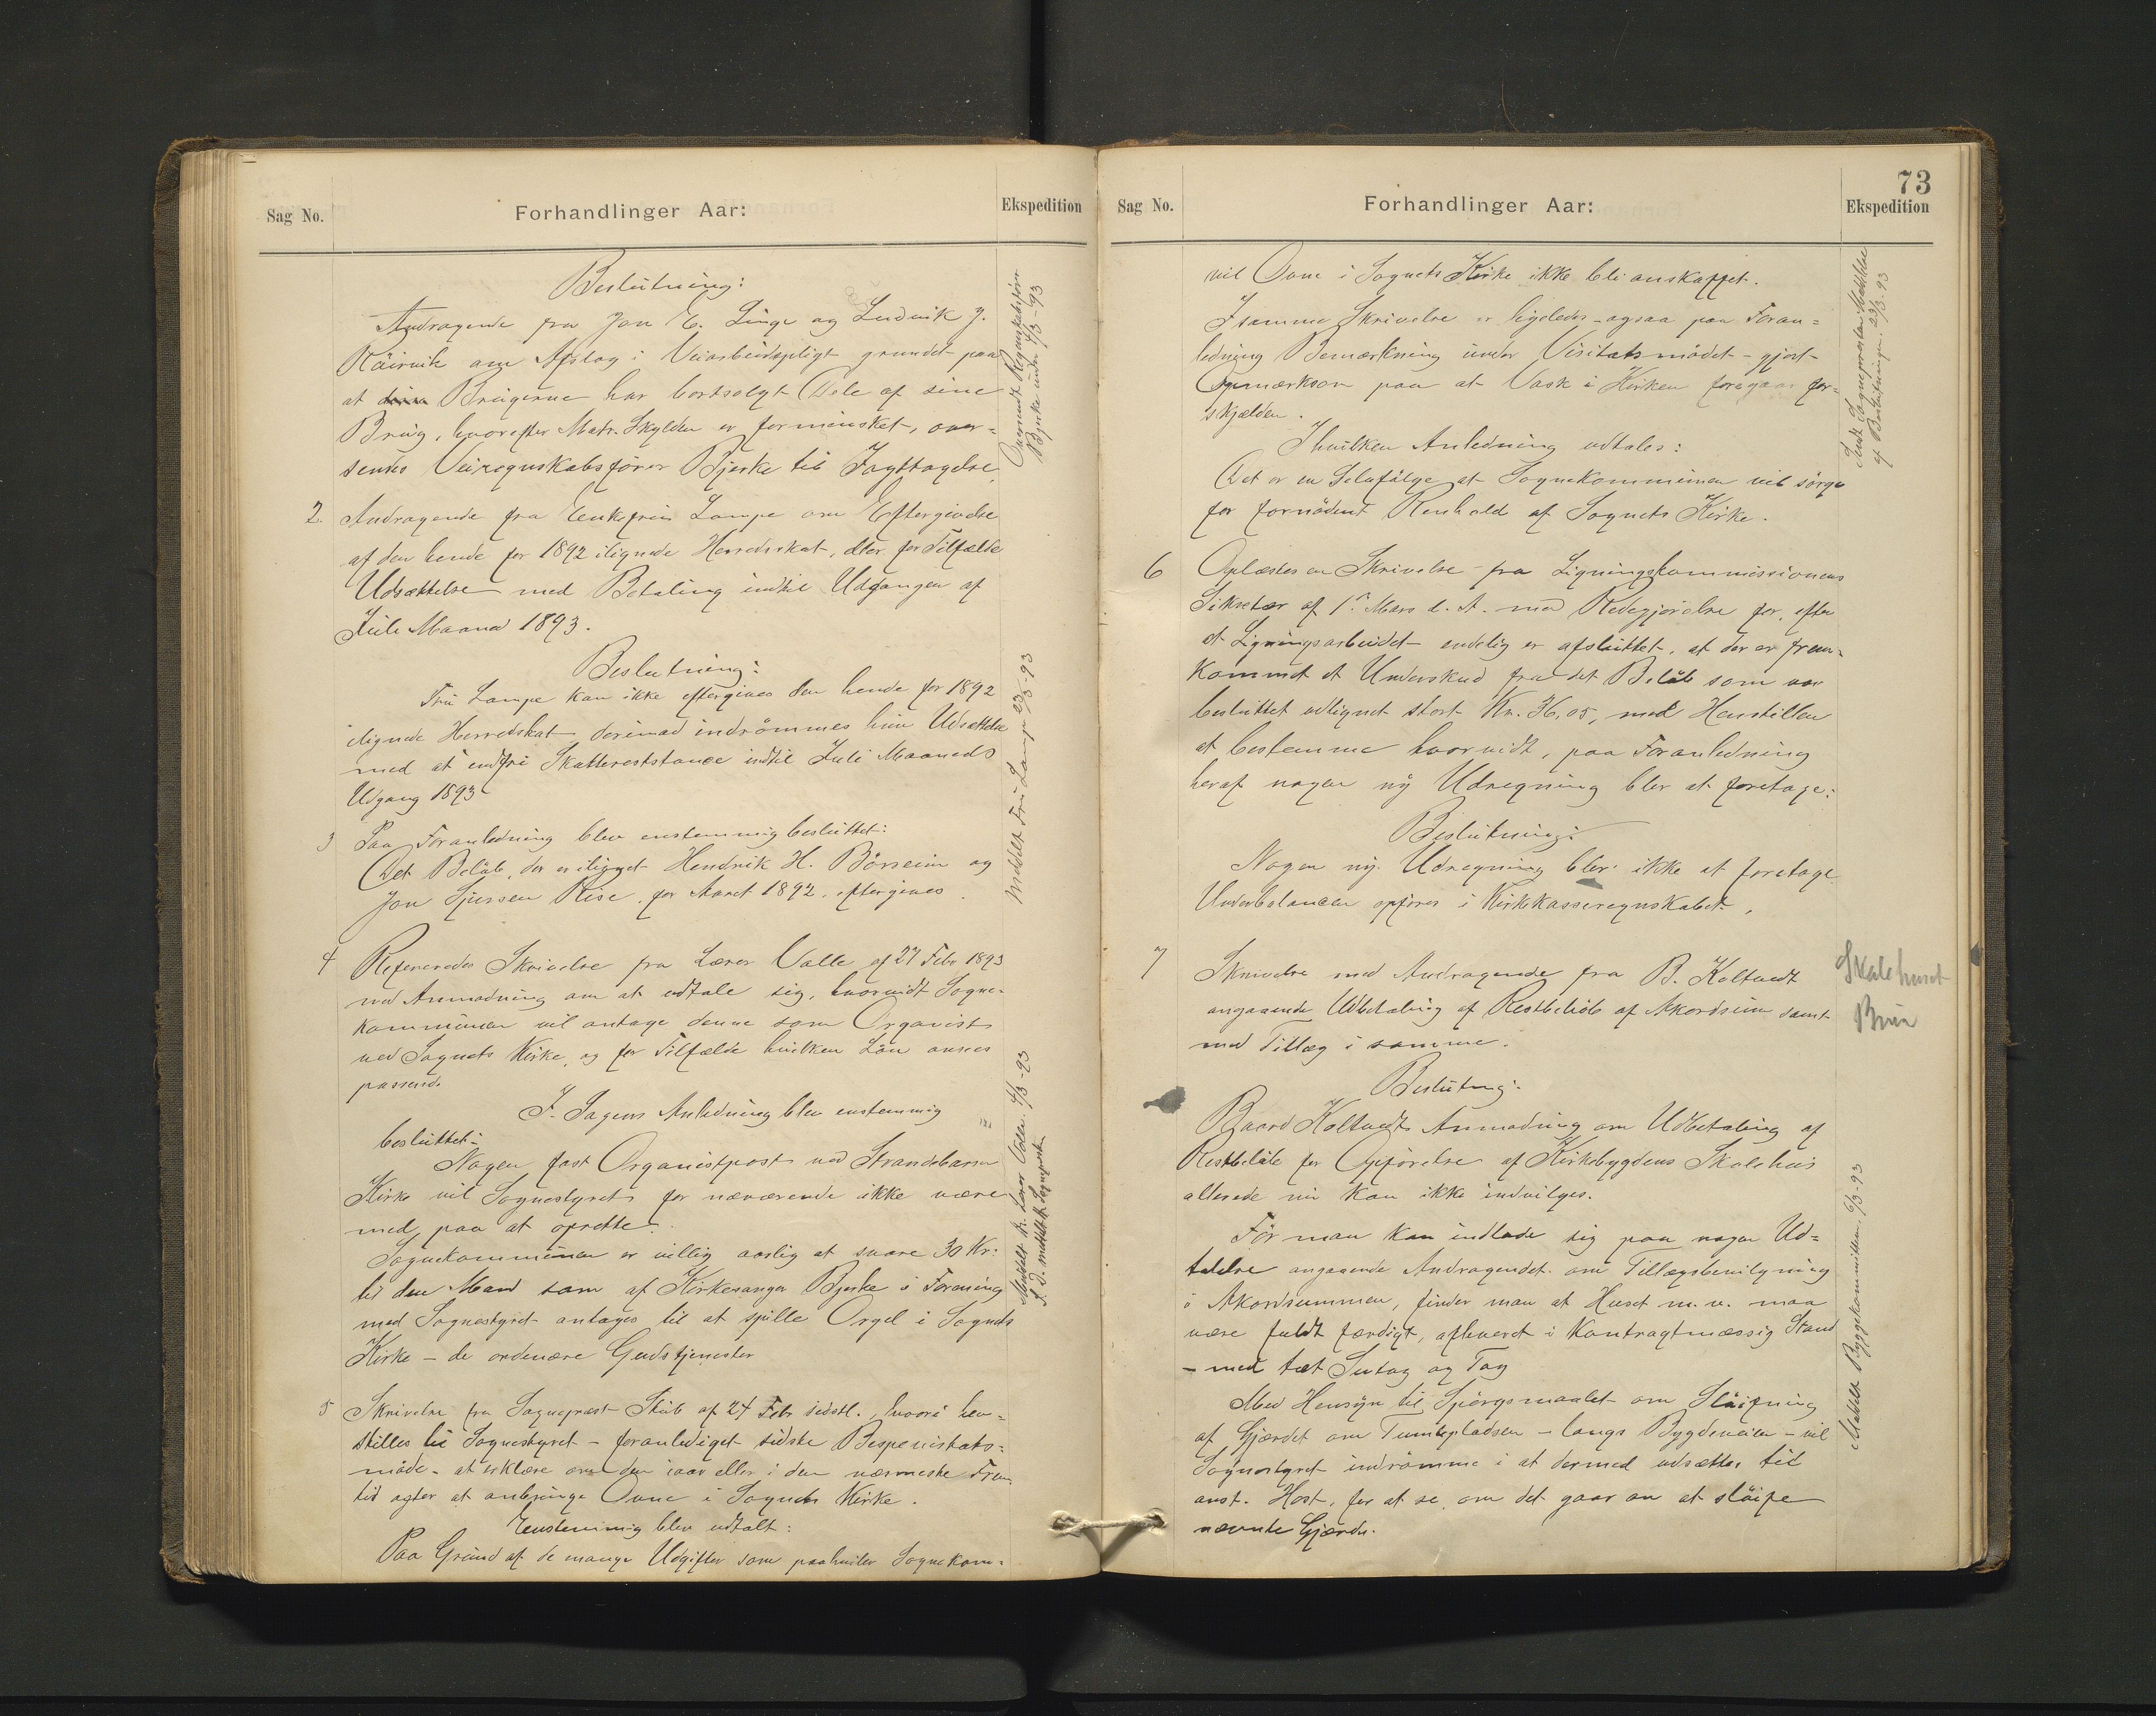 Sag No.
Forhandlinger Aar:
Ekspedition
Beslutning:
Andragende fra Jon E. Linge og Ludvik J.
Röirvik om Afslag i Veiarbeidspligt grundet paa
at Brugerne har bortsolgt Dele af sine
Brug, hvorefter Matr. Skylden er forminsket, over-
sendes Veiregnskabsförer Bjerke til Iagttagelse.
2. Andragende fra Enkefru Lampe om Eftergivelse
af den hende for 1892 ilignede Herredsskat, eller for Tilfælde
Udsættelse med Betaling indtil Udgangen af
Juli Maaned 1893.
Beslutning:
Fru Lampe kan ikke eftergives den hende for 1892
ilignede Herredskat derimod indrömmes hun Udsættelse
med at indfri Skatterestance indtil Juli Maaneds
Udgang 1893
3 Paa Foranledning blev enstemmig besluttet:
Det Belöb, der er ilignet Hendrik H. Börsheim og
Jon Sjursen Rise, for Aaret 1892, eftergives.
4 Refereredes Skrivelse fra Lærer Valle af 27 Febr 1893
med Anmodning om at udtale sig, hvorvidt Sogne-
kommunen vil antage denne som Organist
ved Sognets Kirke, og for Tilfælde hvilken Lön ansees
passende
I Sagens Anledning blev enstemmig
besluttet:
Nogen fast Organistpost ved Strandebarm
Kirke vil Sognestyret for nærværende ikke være
med paa at oprette.
Sognekommunen er villig aarlig at svare 30 Kr.
til den Mand som af Kirkesanger Bjerke i Forening
med Sognestyret antages til at spille Orgel i Sognets
Kirke – de ordenære Gudstjenester
5 Skrivelse fra Sogneprest Skub af 24 Febr sidstl., hvori hen-
stilles til Sognestyret – foranlediget sidste Bispevisitats-
möde – at erklære om den iaar eller i den nærmeste Frem
tid agter at anbringe Ovne i Sognets Kirke.
Enstemmig blev udtalt:
Paa Grund af de mange Udgifter som paahviler Sognekom-
Oversendt Regnskabsförer
Bjerke under 4/3-93
Meddelt Fru Lampe 23/3-93
Meddelt Hr. Lærer Valle. 4/3-93
S. D. meddelt Hr. Sogneprest
73
Sag No.
Forhandlinger Aar:
Ekspedition
vil Ovne i Sognets Kirke ikke bli anskaffet.
I samme Skrivelse er ligeledes – ogsaa paa Foran-
ledning Bemærkning under Visitatsmödet – gjort
Opmærksom paa at Vask i Kirken foregaar for-
skjælden.
I hvilken Anledning udtales:
Det er en Selvfölge at Sognekommunen vil sörge
for fornödent Renhold af Sognets Kirke.
6 Oplæstes en Skrivelse fra Ligningskommissionens
Sekretær af 1ste Mars d. A. med Redegjörelse for, efter
at Ligningsarbeidet endelig er afsluttet, at der er frem-
kommet et Underskud fra det Belöb som var
besluttet udlignet stort Kr. 36,05, med Henstillen
at bestemme hvorvidt, paa Foranledning
heraf nogen ny Udregning blev at foretage:
Beslutning:
Nogen ny Udregning blev ikke at foretage
Underbalancen opföres i Kirkekasseregnskabet.
7 Skrivelse med Andragende fra B. Koltvedt
angaaende Udbetaling af Restbelöb af Akordsum samt
med Tillæg i samme.
Beslutng:
Baard Koltvedts Anmodning om Udbetaling af
Restbelöb for Opförelse af Kirkebygdens Skolehus
allerede nu kan ikke indvilges.
För man kan indlade sig paa nogen Ud-
talelse angaaende Andragendet om Tillægsbevilgning
i Akordsummen, finder man at Huset m. v. maa
være fuldt færdigt, afleveret i Kontragtmæssig Stand
– med tæt Sutag og Tag
Med Hensyn til Spörgsmaalet om Slöifning
af Gjærdet om Tumlepladsen – langs Bygdeveien – vil
Sognestyret indrömme i at dermed udsættes til
anst. Höst, for at se om det gaar an at slöife
nævnte Gjærde.
Sendt Sognepresten
af Beslutningen. 23/3-93
Skolehuset
Meddelt Byggekomiteen 6/3-93